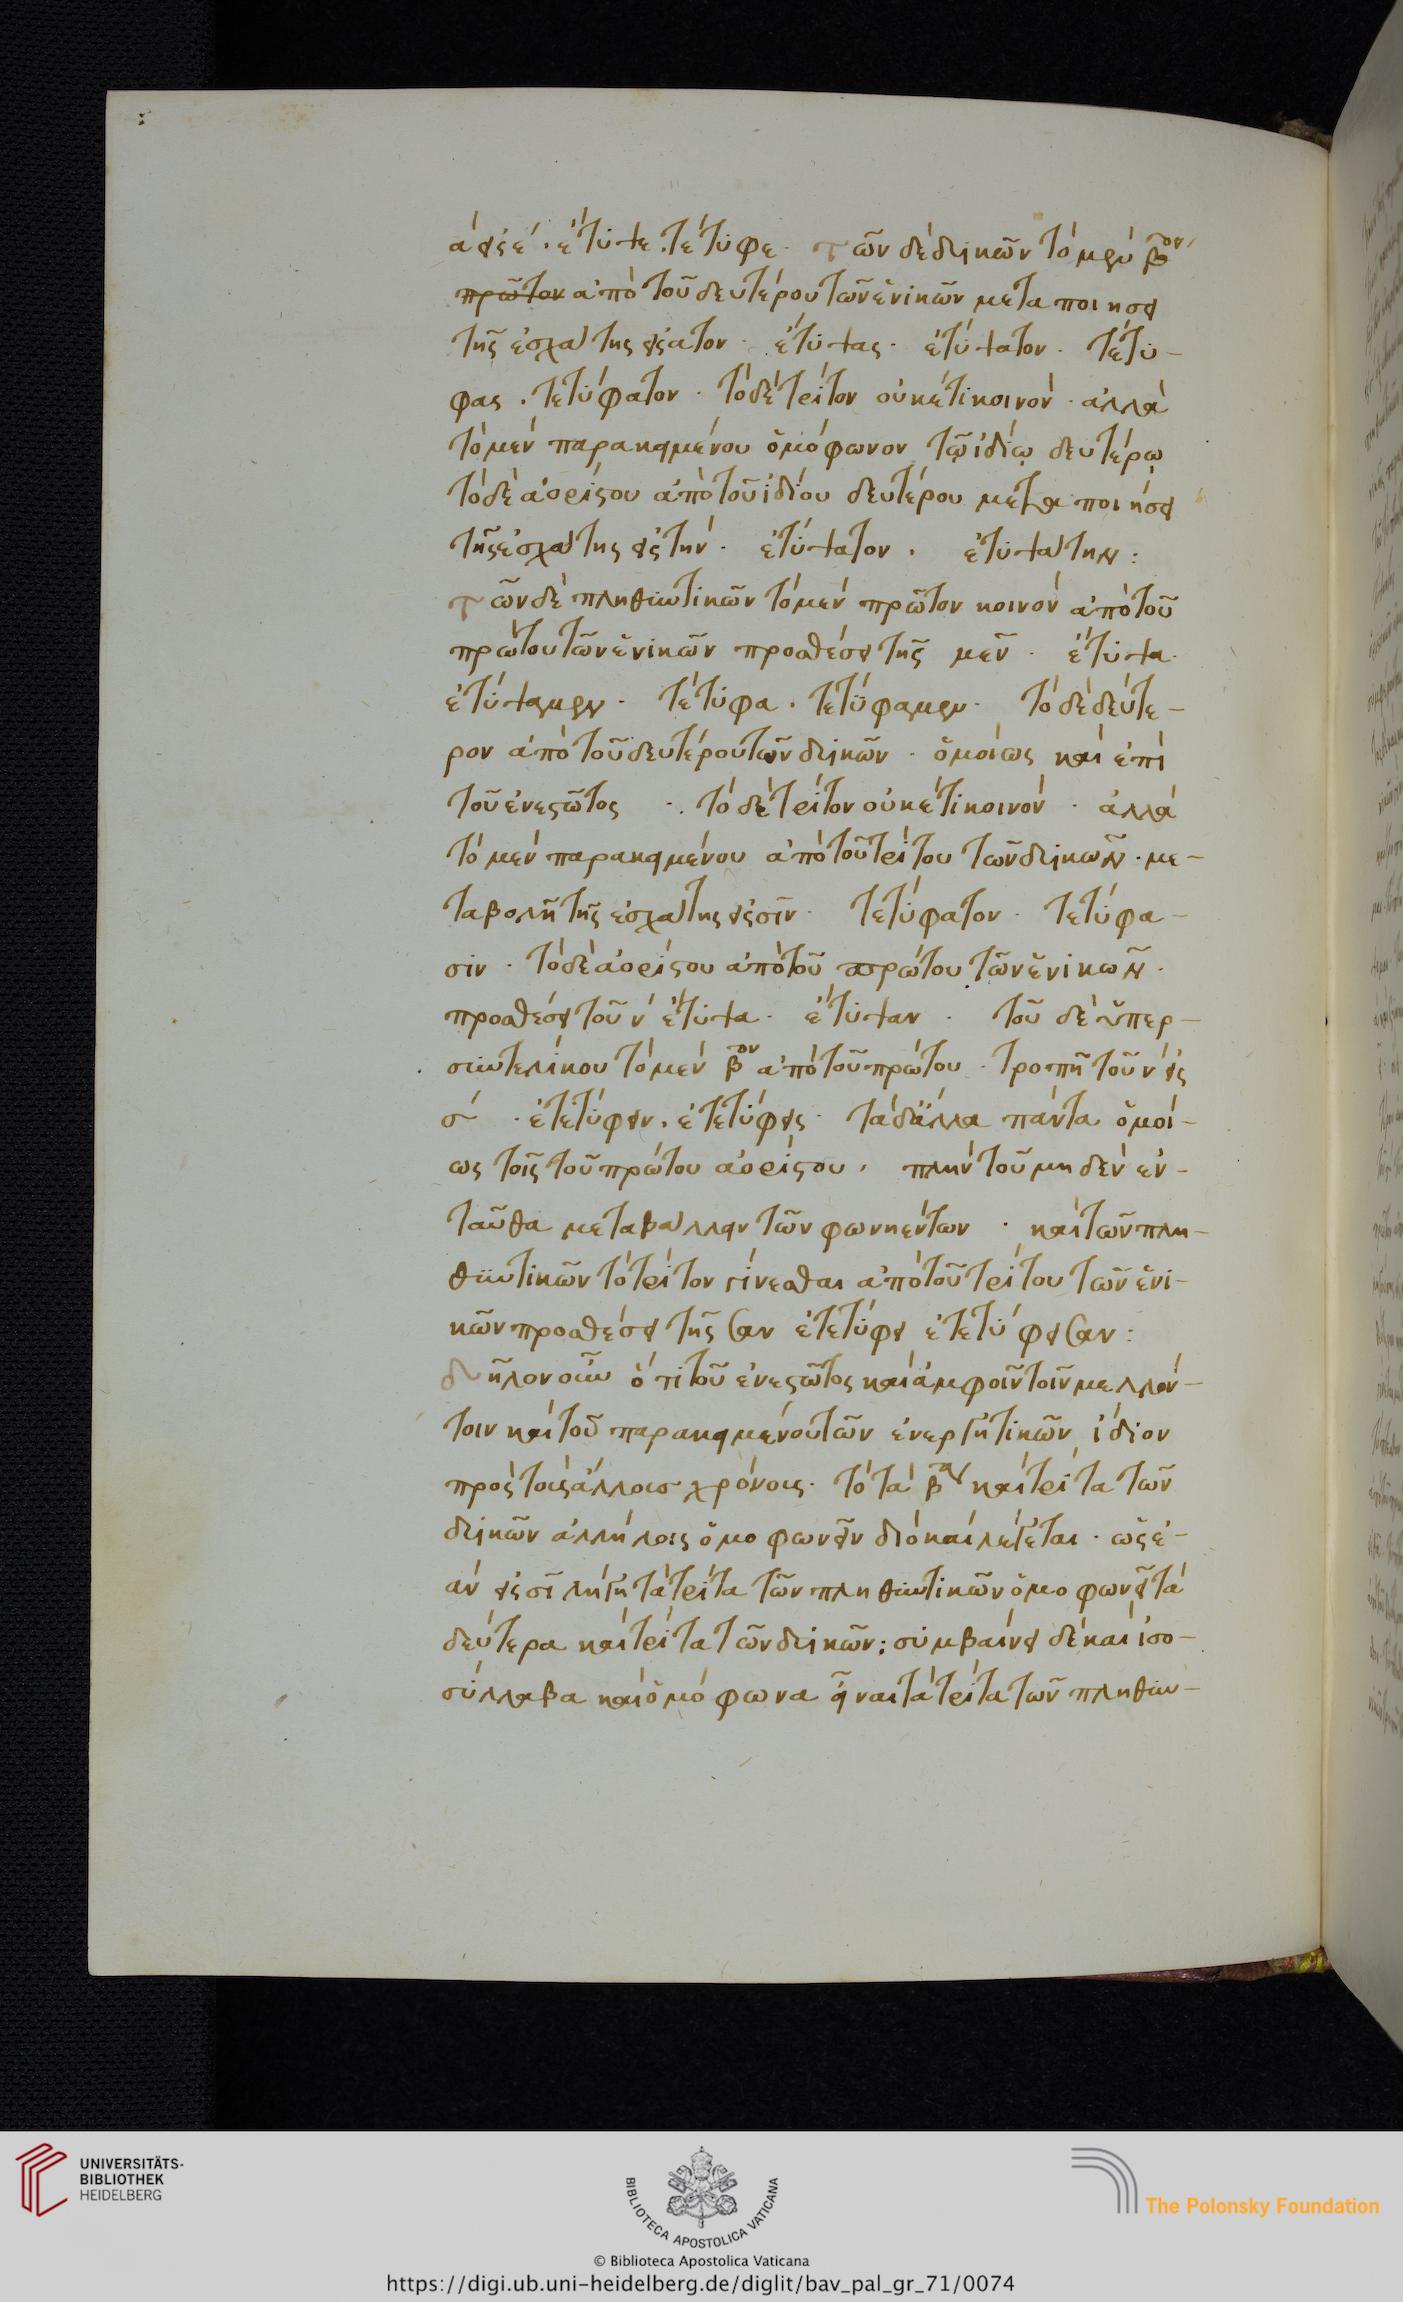 ά εἰς έ · ἔτυψε · τέτυφε · τῶν δὲ δυϊκῶν τὸ μὲν βον
πρῶτον ἀπὸ τοῦ δευτέρου τῶν ἑνικῶν μεταποιήσει
τῆς ἐσχάτης εἰς ατον · ἔτυψας · ἐτύψατον · τέτυ-
φας · τετύφατον · τὸ δὲ τρίτον οὐκέτι κοινὸν · ἀλλὰ
τὸ μὲν παρακειμένου ὁμόφωνον τῷ ἰδίῳ δευτέρῳ
τὸ δὲ ἀορίστου ἀπὸ τοῦ ἰδίου δευτέρου μεταποιήσει
τῆς ἐσχάτης εἰς την · ἐτύψατον · ἐτυψάτην :
τῶν δὲ πληθυντικῶν τὸ μὲν πρῶτον κοινὸν ἀπὸ τοῦ
πρώτου τῶν ἑνικῶν προσθέσει τῆς μεν · ἔτυψα
ἐτύψαμεν · τέτυφα · τετύφαμεν · τὸ δὲ δεύτε-
ρον ἀπὸ τοῦ δευτέρου τῶν δυϊκῶν · ὁμοίως καὶ ἐπὶ
τοῦ ἐνεστῶτος · τὸ δὲ τρίτον οὐκέτι κοινὸν · ἀλλὰ
τὸ μὲν παρακειμένου ἀπὸ τοῦ τρίτου τῶν δυϊκῶν · με-
ταβολῇ τῆς ἐσχάτης εἰς σιν · τετύφατον · τετύφα-
σιν · τὸ δὲ ἀορίστου ἀπὸ τοῦ πρώτου τῶν ἑνικῶν ·
προσθέσει τοῦ ν ἔτυψα · ἔτυψαν · τοῦ δὲ ὑπερ-
συντελίκου τὸ μὲν βον ἀπὸ τοῦ πρώτου · τροπῇ τοῦ ν εἰς
σ · ἐτετύφειν · ἐτετύφεις · τὰ δἄλλα πάντα ὁμοί-
ως τοῖς τοῦ πρώτου ἀορίστου · πλὴν τοῦ μηδὲν ἐν-
ταῦθα μεταβάλλειν τῶν φωνηέντων · καὶ τῶν πλη-
θυντικῶν τὸ τρίτον γίνεσθαι ἀπὸ τοῦ τρίτου τῶν ἑνι-
κῶν προσθέσει τῆς σαν ἐτετύφει ἐτετύφεισαν :
δῆλον οὖν ὅτι τοῦ ἐνεστῶτος καὶ ἀμφοῖν τοῖν μελλόν-
τοιν καὶ τοῦ παρακειμένου τῶν ἐνεργητικῶν ἴδιον
πρὸς τοῖς ἄλλοις χρόνοις · τὸ τὰ βα καὶ τρίτα τῶν
δυϊκῶν ἀλλήλοις ὁμοφωνεῖν διὸ καὶ λέγεται · ὡς ἐ-
ὰν εἰς σι λήγῃ τὰ τρίτα τῶν πληθυντικῶν ὁμοφωνεῖ τὰ
δεύτερα καὶ τρίτα τῶν δυϊκῶν : συμβαίνει δὲ καὶ ἰσο-
σύλλαβα καὶ ὁμόφωνα εἶναι τὰ τρίτα τῶν πληθυν-
UNIVERSITÄTS-
BIBLIOTHEK
HEIDELBERG
BIBLIOTECA APOSTOLICA VATICANA
The Polonsky Foundation
© Biblioteca Apostolica Vaticana
https://digi.ub.uni-heidelberg.de/diglit/bav_pal_gr_71/0074